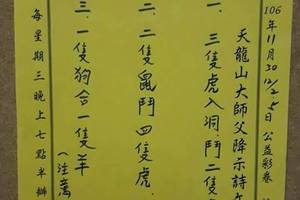 106年11月30 12/2.5日公益彩卷
天龍山大師父降示詩文
一.三隻虎入洞.鬥二隻
二.二隻鼠鬥四隻虎.
三.一隻狗合一隻羊
(注意
每星期三晚上七點半辦